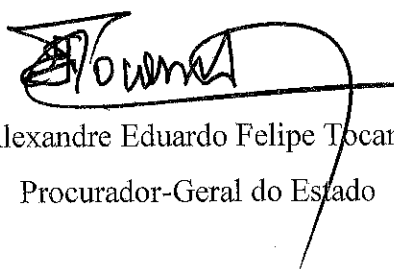 lexandre Eduardo Felipe Tocan
Procurador-Geral do Estado